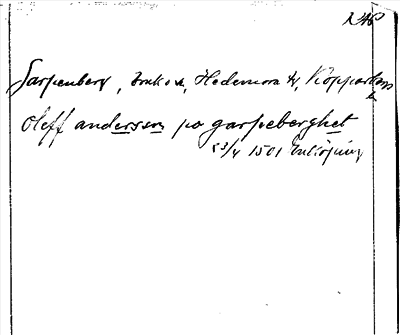 Garpenberg, bruk o sn, Hedemora tg, Kopparbergs
l
Oleff andersson po garpeberghet
23/4 1501 Enköping